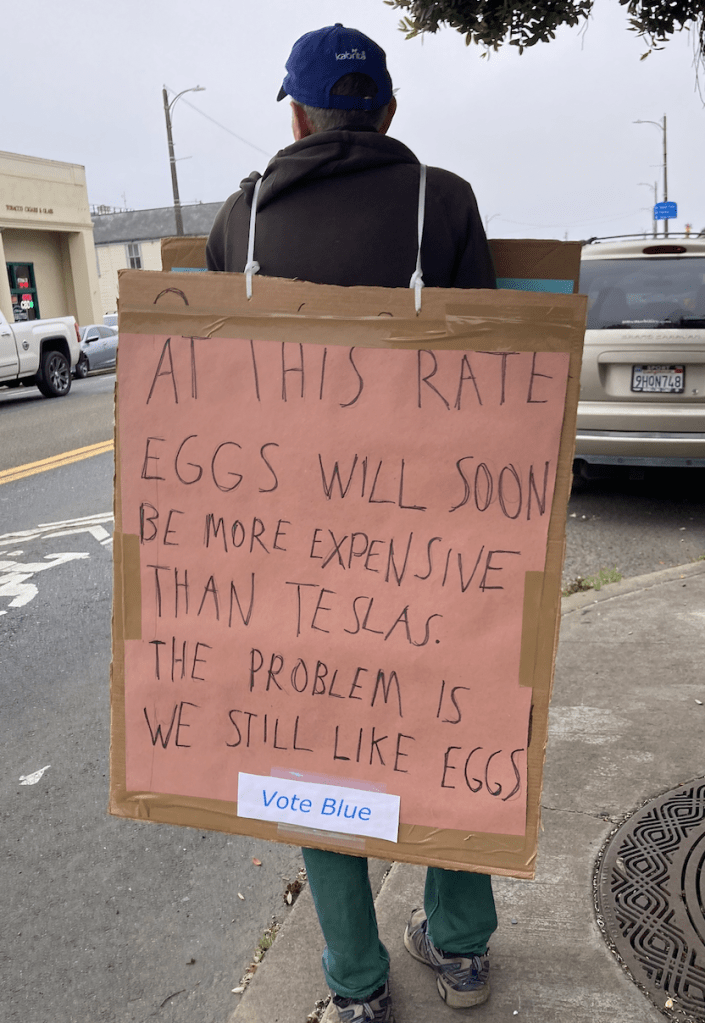 kabrita
TOBACCO CIGARS & GLASS
9H0N748
AT THIS RATE
EGGS WILL SOON
BE MORE EXPENSIVE
THAN TESLAS.
THE PROBLEM IS
WE STILL LIKE EGGS
Vote Blue